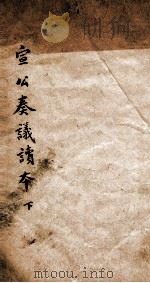 宣公奏議讀本 下
mtoou.info